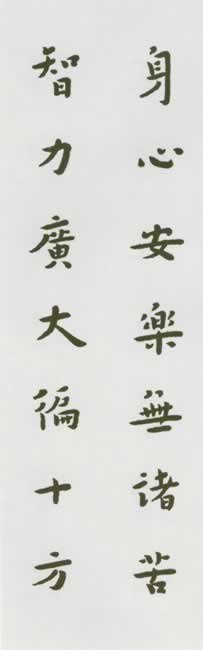 身心安樂無諸苦
智力廣大徧十方